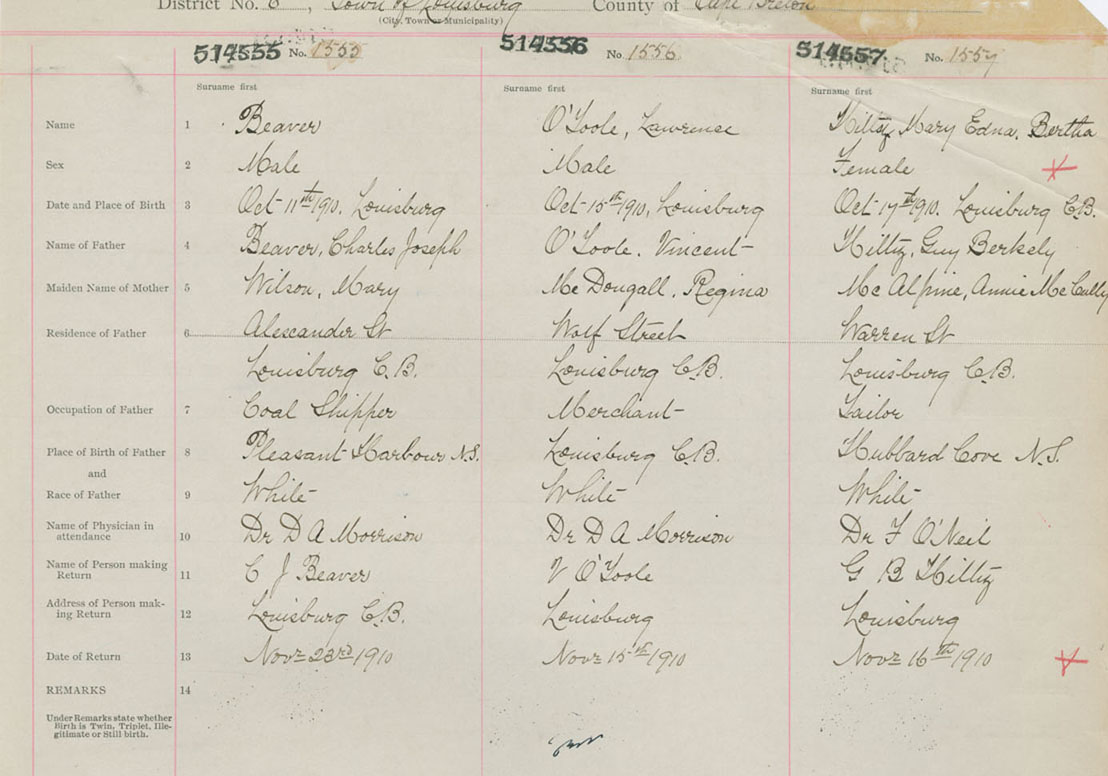 District No. 6, Town of Louisburg County of Cape Breton
(City, Town or Municipality)
514555 No. 1555 514556 No. 1556 514557 No. 1557
Surname first Surname first Surname first
Name 1 Beaver O'Toole, Lawrence Hiltz, Mary Edna, Bertha
Sex 2 Male Male Female
Date and Place of Birth 3 Oct 11th 1910. Louisburg Oct 15th 1910, Louisburg Oct 17th 1910. Louisburg C.B.
Name of Father 4 Beaver, Charles Joseph O'Toole. Vincent Hiltz, Guy Berkely
Maiden Name of Mother 5 Wilson, Mary McDougall, Regina McAlpine, Annie McCully
Residence of Father 6 Alexcander St Wolf Street Warren St
Louisburg C.B. Louisburg C.B. Louisburg C.B.
Occupation of Father 7 Coal Shipper Merchant Tailor
Place of Birth of Father 8 Pleasant Harbour N.S. Louisburg C.B. Hubbard Cove N.S.
and
Race of Father 9 White White White
Name of Physician in
attendance 10 Dr D A Morrison Dr D A Morrison Dr F O'Neil
Name of Person making
Return 11 C J Beaver V O'Toole G B Hiltz
Address of Person mak-
ing Return 12 Louisburg C.B. Louisburg Louisburg
Date of Return 13 Nov 23rd 1910 Nov 15th 1910 Nov 16th 1910
REMARKS 14
Under Remarks state whether
Birth is Twin, Triplet, Ille-
gitimate or Still birth.